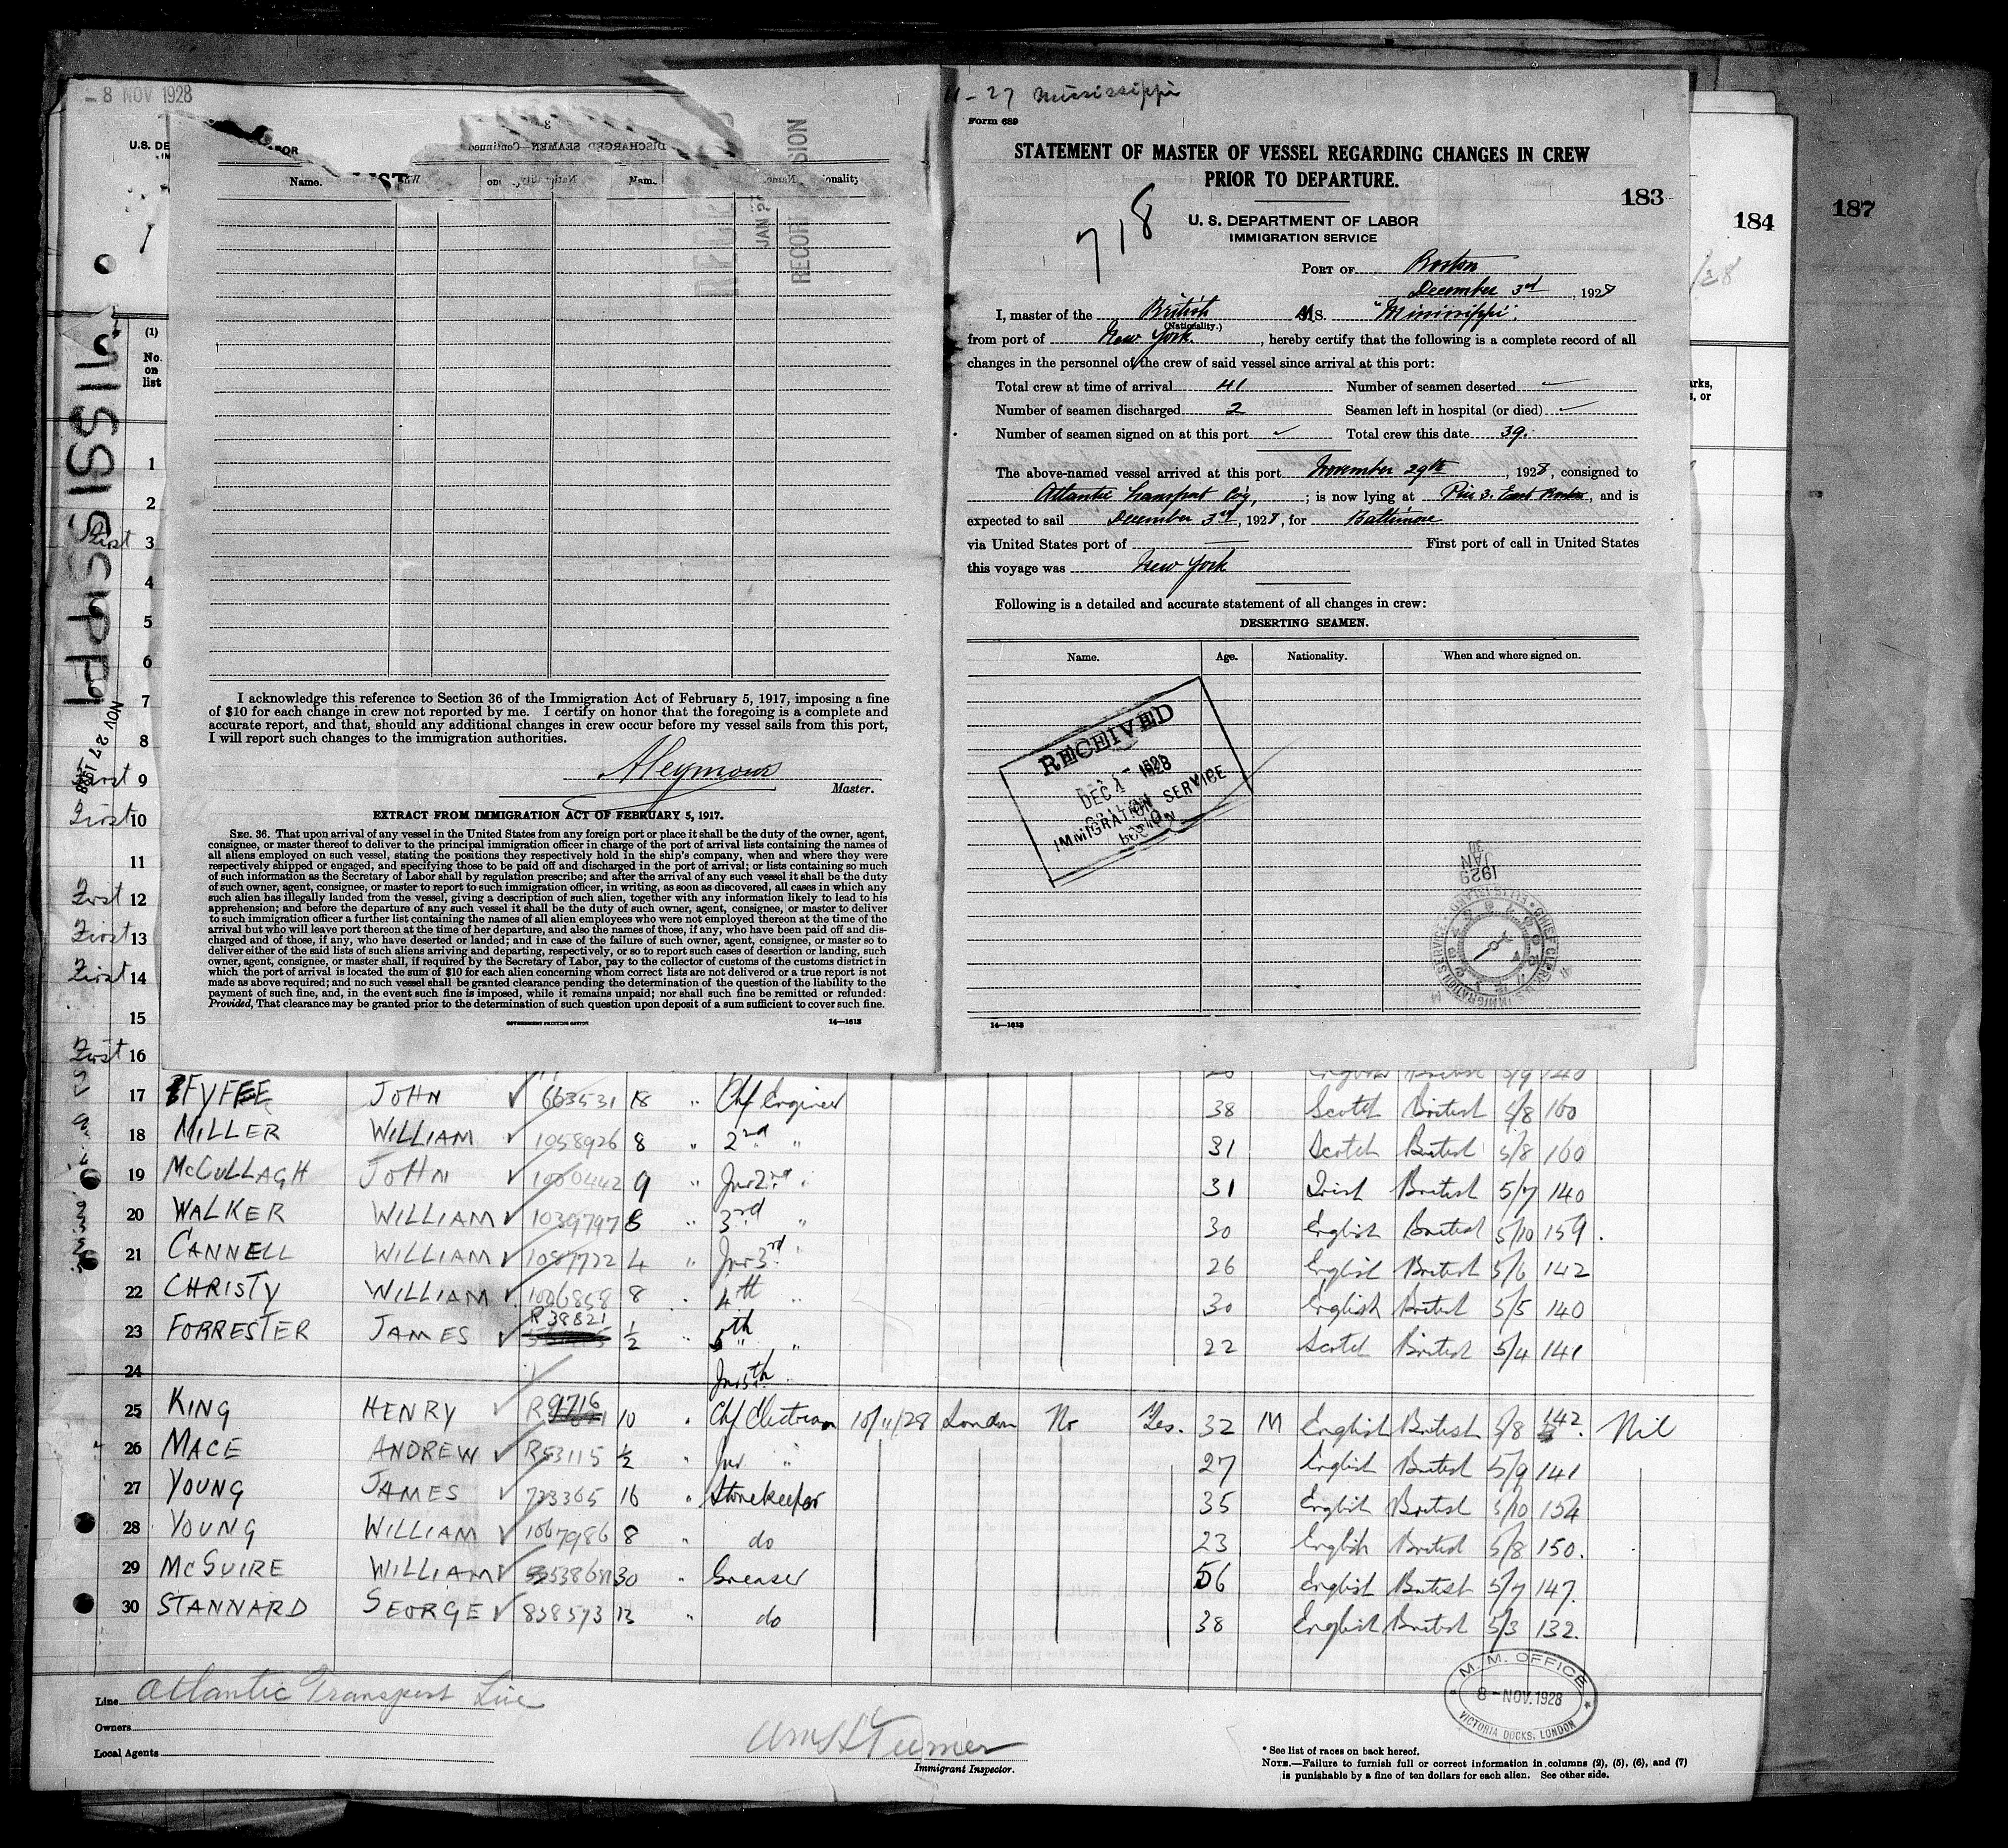 - 8 NOV 1928
U.S. DE
BOR
LIST
DISCHARGED SEAMEN—Continued
Name.
Nationality
RECORD
JAN
MISSISSIPPI
NOV 27 1928
(1)
No.
on
list
1
2
First 3
4
5
6
7
8
First 9
First 10
11
First 12
First 13
First 14
15
First 16
I acknowledge this reference to Section 36 of the Immigration Act of February 5, 1917, imposing a fine
of $10 for each change in crew not reported by me. I certify on honor that the foregoing is a complete and
accurate report, and that, should any additional changes in crew occur before my vessel sails from this port,
I will report such changes to the immigration authorities.
Master.
EXTRACT FROM IMMIGRATION ACT OF FEBRUARY 5, 1917.
SEC. 36. That upon arrival of any vessel in the United States from any foreign port or place it shall be the duty of the owner, agent,
consignee, or master thereof to deliver to the principal immigration officer in charge of the port of arrival lists containing the names of
all aliens employed on such vessel, stating the positions they respectively hold in the ship's company, when and where they were
respectively shipped or engaged, and specifying those to be paid off and discharged in the port of arrival; or lists containing so much
of such information as the Secretary of Labor shall by regulation prescribe; and after the arrival of any such vessel it shall be the duty
of such owner, agent, consignee, or master to report to such immigration officer, in writing, as soon as discovered, all cases in which any
such alien has illegally landed from the vessel, giving a description of such alien, together with any information likely to lead to his
apprehension; and before the departure of any such vessel it shall be the duty of such owner, agent, consignee, or master to deliver
to such immigration officer a further list containing the names of all alien employees who were not employed thereon at the time of the
arrival but who will leave port thereon at the time of her departure, and also the names of those, if any, who have been paid off and dis-
charged and of those, if any, who have deserted or landed; and in case of the failure of such owner, agent, consignee, or master so to
deliver either of the said lists of such aliens arriving and departing, respectively, or so to report such cases of desertion or landing, such
owner, agent, consignee, or master shall, if required by the Secretary of Labor, pay to the collector of customs of the customs district in
which the port of arrival is located the sum of $10 for each alien concerning whom correct lists are not delivered or a true report is not
made as above required; and no such vessel shall be granted clearance pending the determination of the question of the liability to the
payment of such fine, and, in the event such fine is imposed, while it remains unpaid; nor shall such fine be remitted or refunded:
Provided, That clearance may be granted prior to the determination of such question upon deposit of a sum sufficient to cover such fine.
GOVERNMENT PRINTING OFFICE 14—1613
11-27 Mississippi
Form 689
STATEMENT OF MASTER OF VESSEL REGARDING CHANGES IN CREW
PRIOR TO DEPARTURE.
183
184
187
718
U. S. DEPARTMENT OF LABOR
IMMIGRATION SERVICE
PORT OF Boston
December 3rd, 1928
I, master of the British M.S. "Mississippi".
(Nationality.)
from port of New York., hereby certify that the following is a complete record of all
changes in the personnel of the crew of said vessel since arrival at this port:
Total crew at time of arrival 41 Number of seamen deserted
Number of seamen discharged 2 Seamen left in hospital (or died)
Number of seamen signed on at this port Total crew this date 39.
The above-named vessel arrived at this port November 29th, 1928, consigned to
Atlantic Transport Coy,; is now lying at Pier 3. East Boston, and is
expected to sail December 3rd, 1928, for Baltimore
via United States port of — First port of call in United States
this voyage was New York
Following is a detailed and accurate statement of all changes in crew:
DESERTING SEAMEN.
Name. Age. Nationality. When and where signed on.
RECEIVED
DEC 4 - 1928
IMMIGRATION SERVICE
BOSTON
1929
JAN
30
14—1613
17 FYFFE JOHN 663531 18 " Chf Engineer 38 Scotch British 5/8 160
18 MILLER WILLIAM 1058926 8 " 2nd " 31 Scotch British 5/8 160
19 McCULLAGH JOHN 1000442 9 " Jnr 2nd " 31 Irish British 5/7 140
20 WALKER WILLIAM 1039797 8 " 3rd " 30 English British 5/10 159.
21 CANNELL WILLIAM 1087722 4 " Jnr 3rd " 26 English British 5/6 142
22 CHRISTY WILLIAM 1006858 8 " 4th " 30 English British 5/5 140
23 FORRESTER JAMES R38821 1/2 " 5th " 22 Scotch British 5/4 141
24 Jnr 5th "
25 KING HENRY R9716 10 " Chf Electrician 10/11/28 London No Yes. 32 M English British 5/8 142. Nil
26 MACE ANDREW R53115 1/2 " Jnr " 27 English British 5/9 141
27 YOUNG JAMES 723365 16 " Storekeeper 35 English British 5/10 154
28 YOUNG WILLIAM 1067986 8 " do 23 English British 5/8 150.
29 McGUIRE WILLIAM 30 " Greaser 56 English British 5/7 147.
30 STANNARD GEORGE 838573 13 " do 38 English British 5/3 132.
Line Atlantic Transport Line
Owners
Local Agents
Wm H Turner
Immigrant Inspector.
M. M. OFFICE
8 - NOV. 1928
VICTORIA DOCKS, LONDON
* See list of races on back hereof.
NOTE.—Failure to furnish full or correct information in columns (2), (5), (6), and (7)
is punishable by a fine of ten dollars for each alien. See other side.